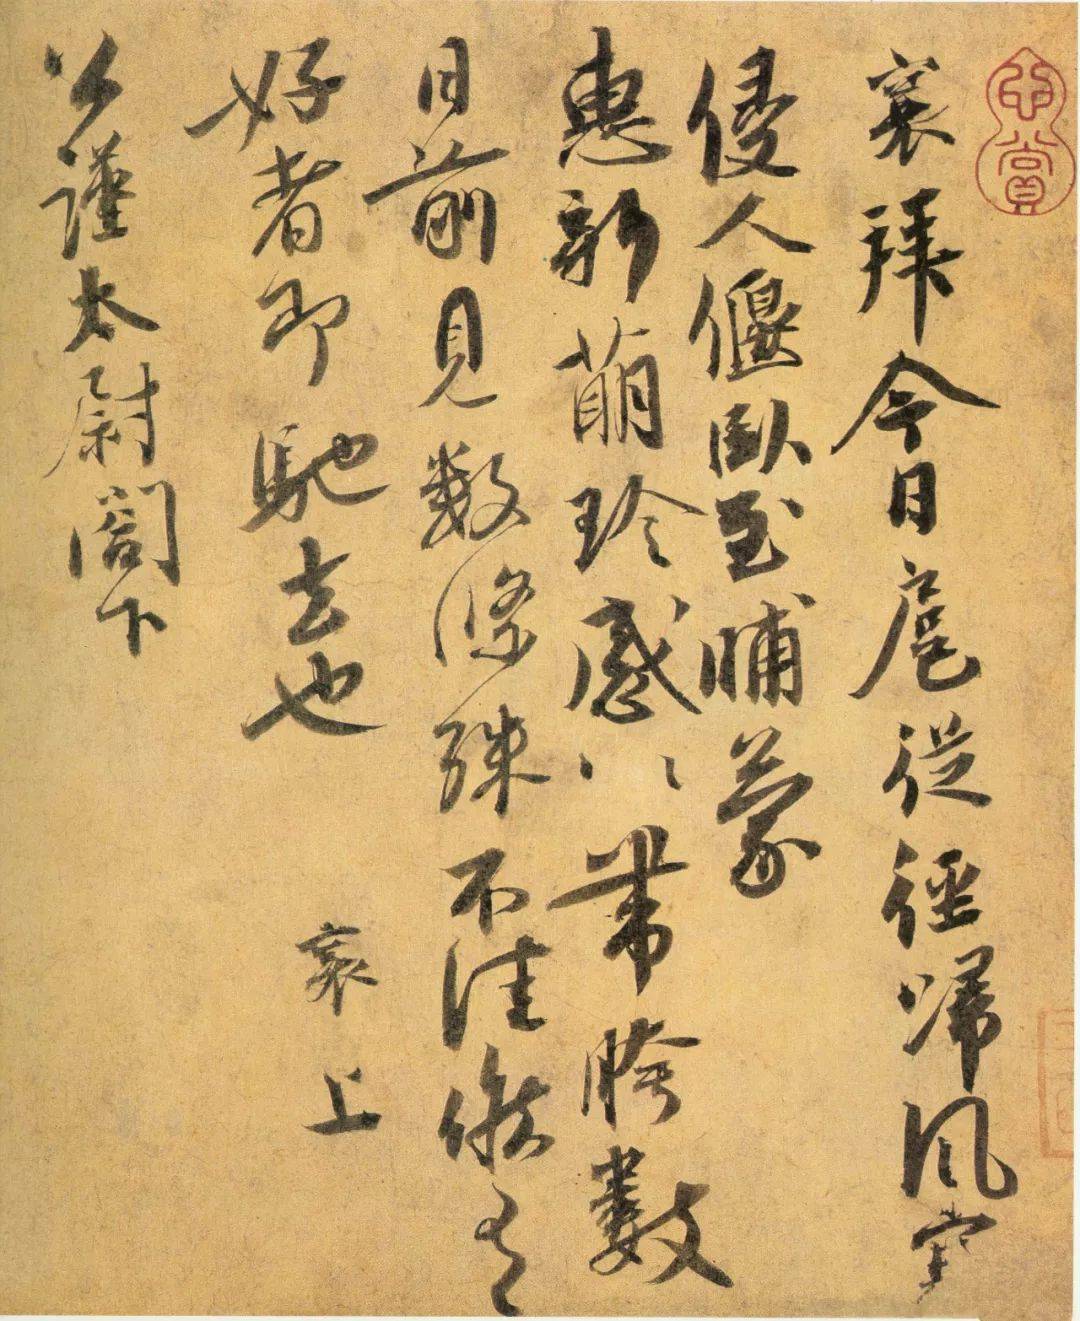 襄拜今日扈從徑歸風寒
侵人偃臥至晡蒙
惠新萌珍感〻〻帶胯數
日前見數條殊不佳候有
好者即馳去也　襄上
公謹太尉閤下
賞